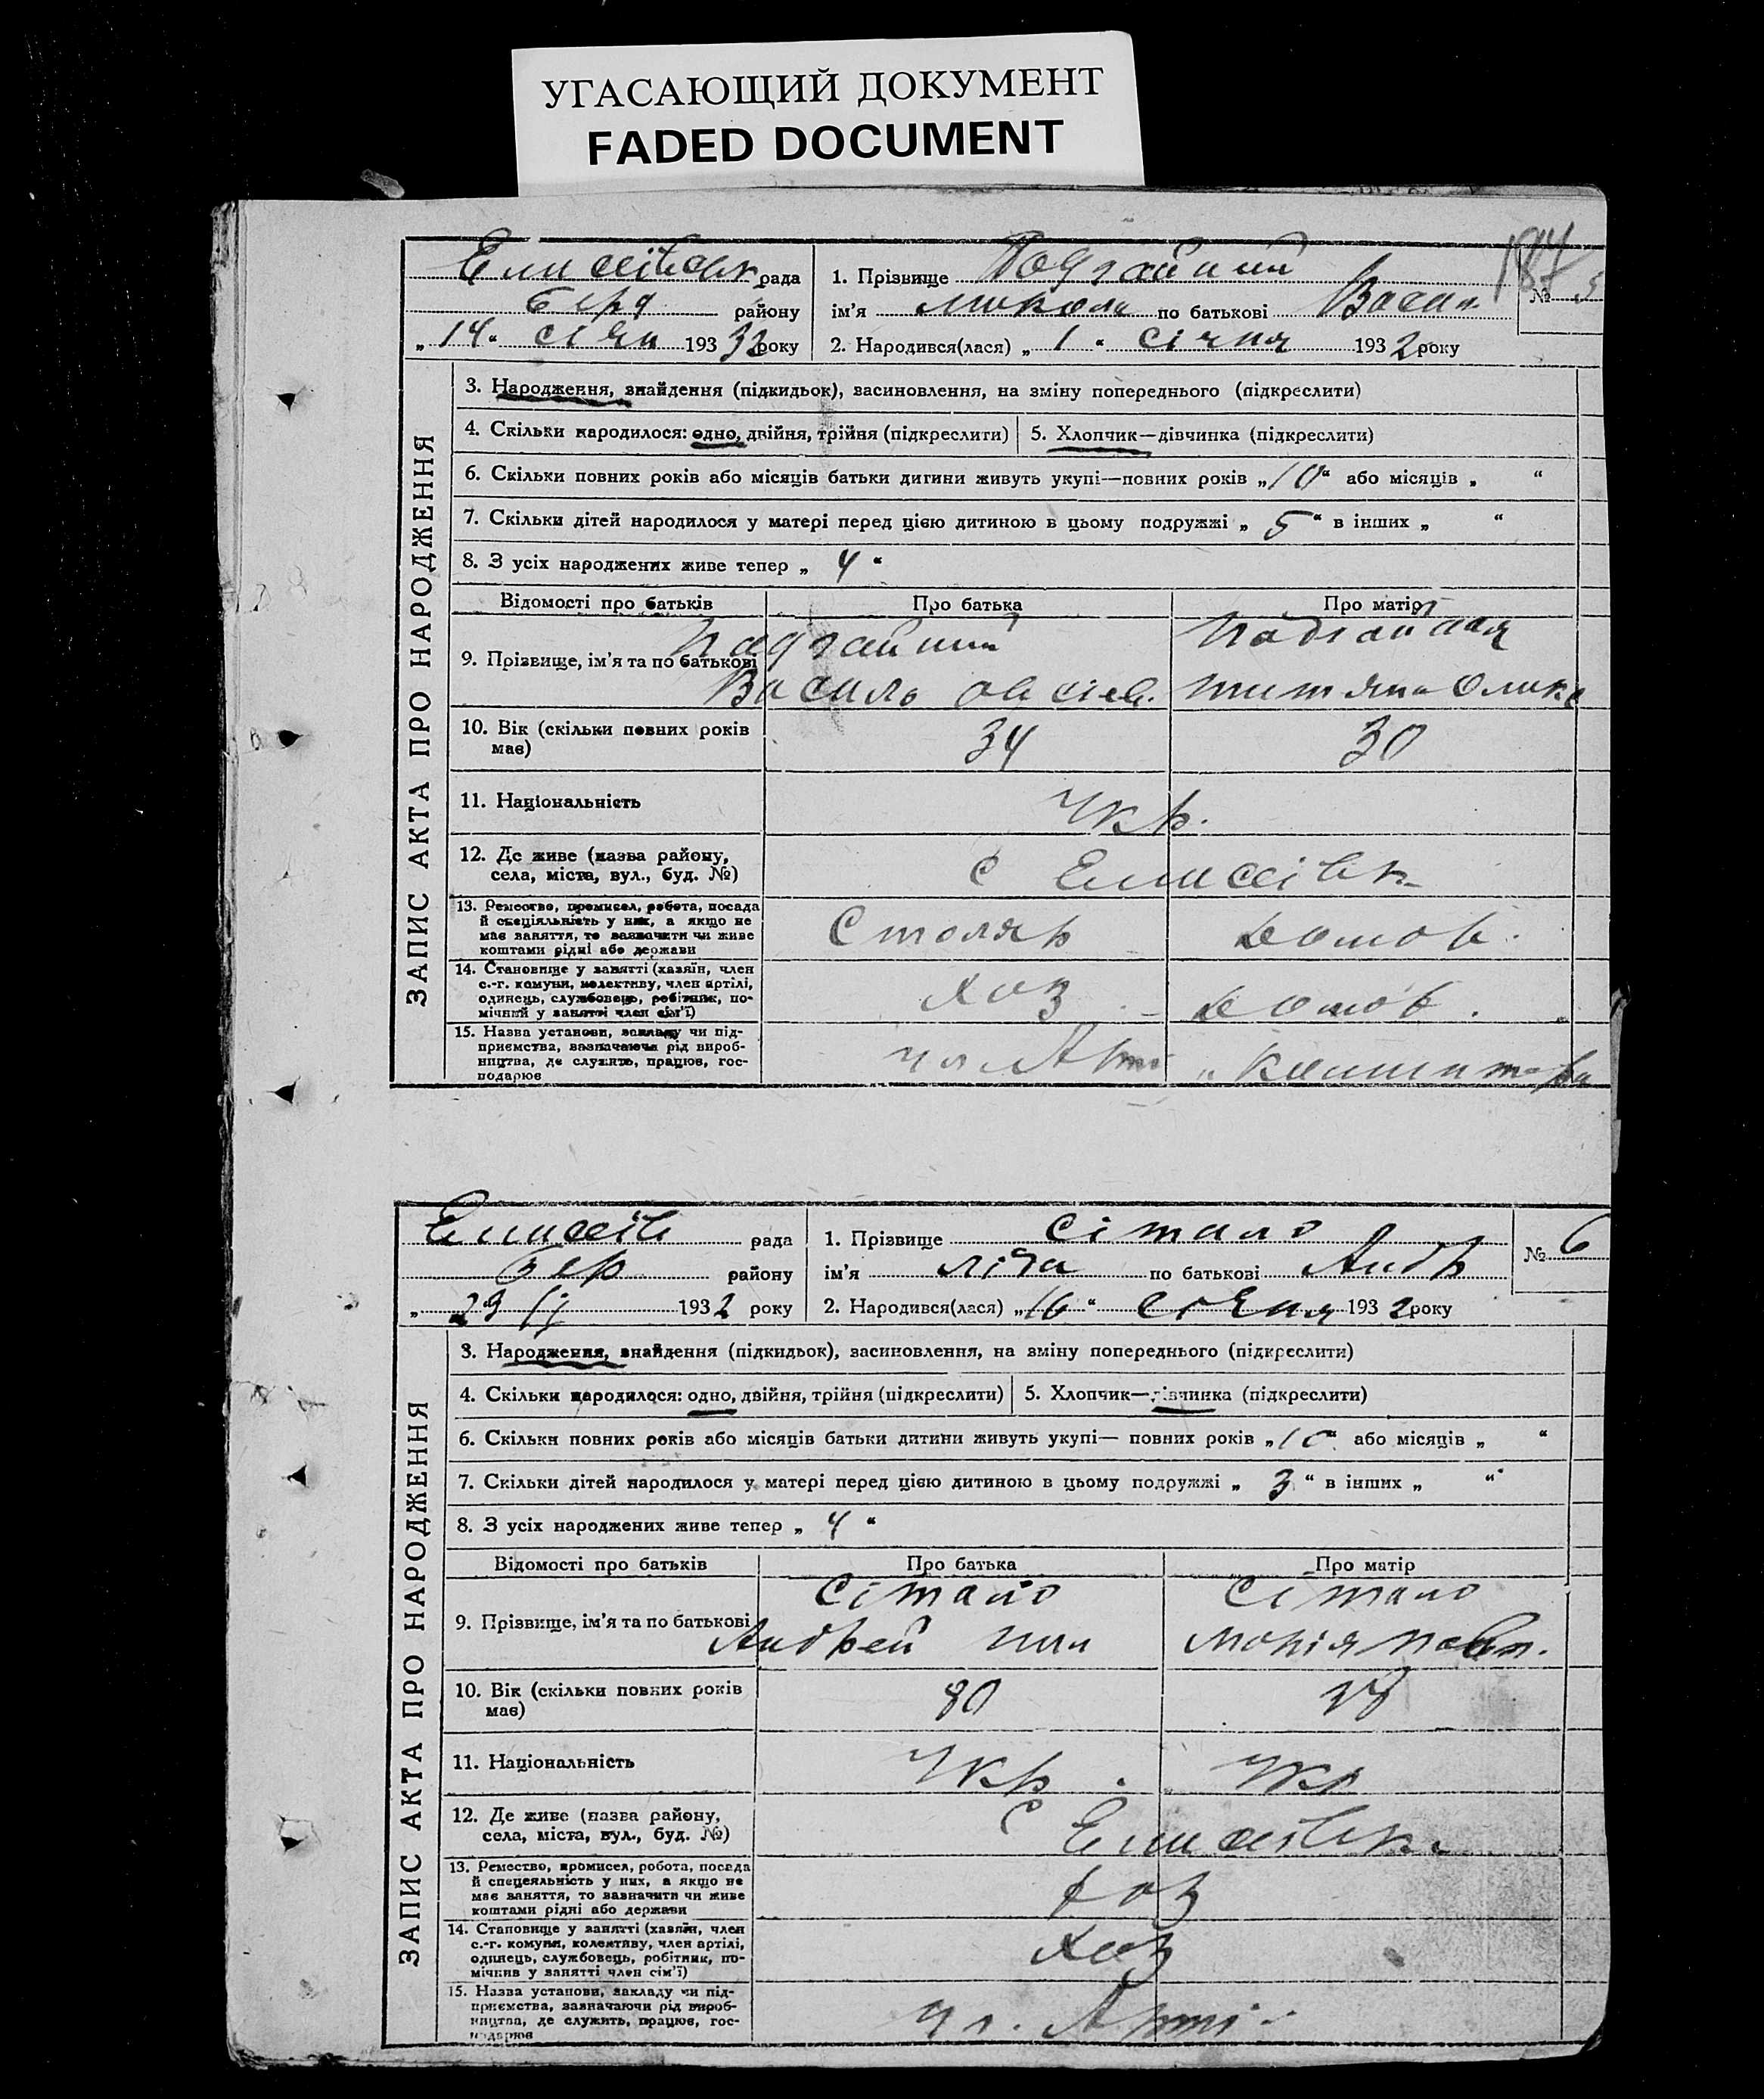 УГАСАЮЩИЙ ДОКУМЕНТ
FADED DOCUMENT
187
Елисеївськ рада
Берд району
„14“ січня 1932 року
1. Прізвище Подгайний
ім’я Микола по батькові Васил
№ 5
2. Народився(лася) „1“ січня 1932 року
ЗАПИС АКТА ПРО НАРОДЖЕННЯ
3. Народження, знайдення (підкидьок), засиновлення, на зміну попереднього (підкреслити)
4. Скільки народилося: одно, двійня, трійня (підкреслити)
5. Хлопчик—дівчинка (підкреслити)
6. Скільки повних років або місяців батьки дитини живуть укупі—повних років „10“ або місяців „ “
7. Скільки дітей народилося у матері перед цією дитиною в цьому подружжі „5“ в інших „ “
8. З усіх народжених живе тепер „4“
Відомості про батьків Про батька Про матір
9. Прізвище, ім’я та по батькові
Падгайний
Василь
Подгайная
Титяна
10. Вік (скільки повних років має) 34 30
11. Національність Укр.
12. Де живе (назва району, села, міста, вул., буд. №) с Елисеївк
13. Ремество, промисел, робота, посада
й спеціяльність у них, а якщо не
має заняття, то зазначити чи живе
коштами рідні або держави
Столяр Домов.
14. Становище у занятті (хазяїн, член
с.-г. комуни, колективу, член артілі,
одинець, службовець, робітник, по-
мічний у занятті член сім’ї)
Хоз Домов.
15. Назва установи, закладу чи під-
приємства, зазначаючи рід вироб-
ництва, де служить, працює, гос-
подарює
чл Арт „Комінтерн
Елисеїв рада
Бер району
„ 29/I 1932 року
1. Прізвище Сітало
ім’я Ліда по батькові Андр
№ 6
2. Народився(лася) „16“ січня 1932 року
ЗАПИС АКТА ПРО НАРОДЖЕННЯ
3. Народження, знайдення (підкидьок), засиновлення, на зміну попереднього (підкреслити)
4. Скільки народилося: одно, двійня, трійня (підкреслити)
5. Хлопчик—дівчинка (підкреслити)
6. Скільки повних років або місяців батьки дитини живуть укупі— повних років „10“ або місяців „ “
7. Скільки дітей народилося у матері перед цією дитиною в цьому подружжі „3“ в інших „ “
8. З усіх народжених живе тепер „4“
Відомості про батьків Про батька Про матір
9. Прізвище, ім’я та по батькові
Сітало
Андрей
Сітало
Марія Павл.
10. Вік (скільки повних років має) 30 28
11. Національність Укр. Укр
12. Де живе (назва району, села, міста, вул., буд. №) с Елисеївк
13. Ремество, промисел, робота, посада
й спецеяльність у них, а якщо не
має заняття, то зазначити чи живе
коштами рідні або держави
Хоз
14. Становище у занятті (хазяїн, член
с.-г. комуни, колективу, член артілі,
одинець, службовець, робітник, по-
мічнив у занятті член сім’ї)
Хоз
15. Назва установи, закладу чи під-
приємства, зазначаючи рід вироб-
ництва, де служить, працює, гос-
подарює
чл. Арті